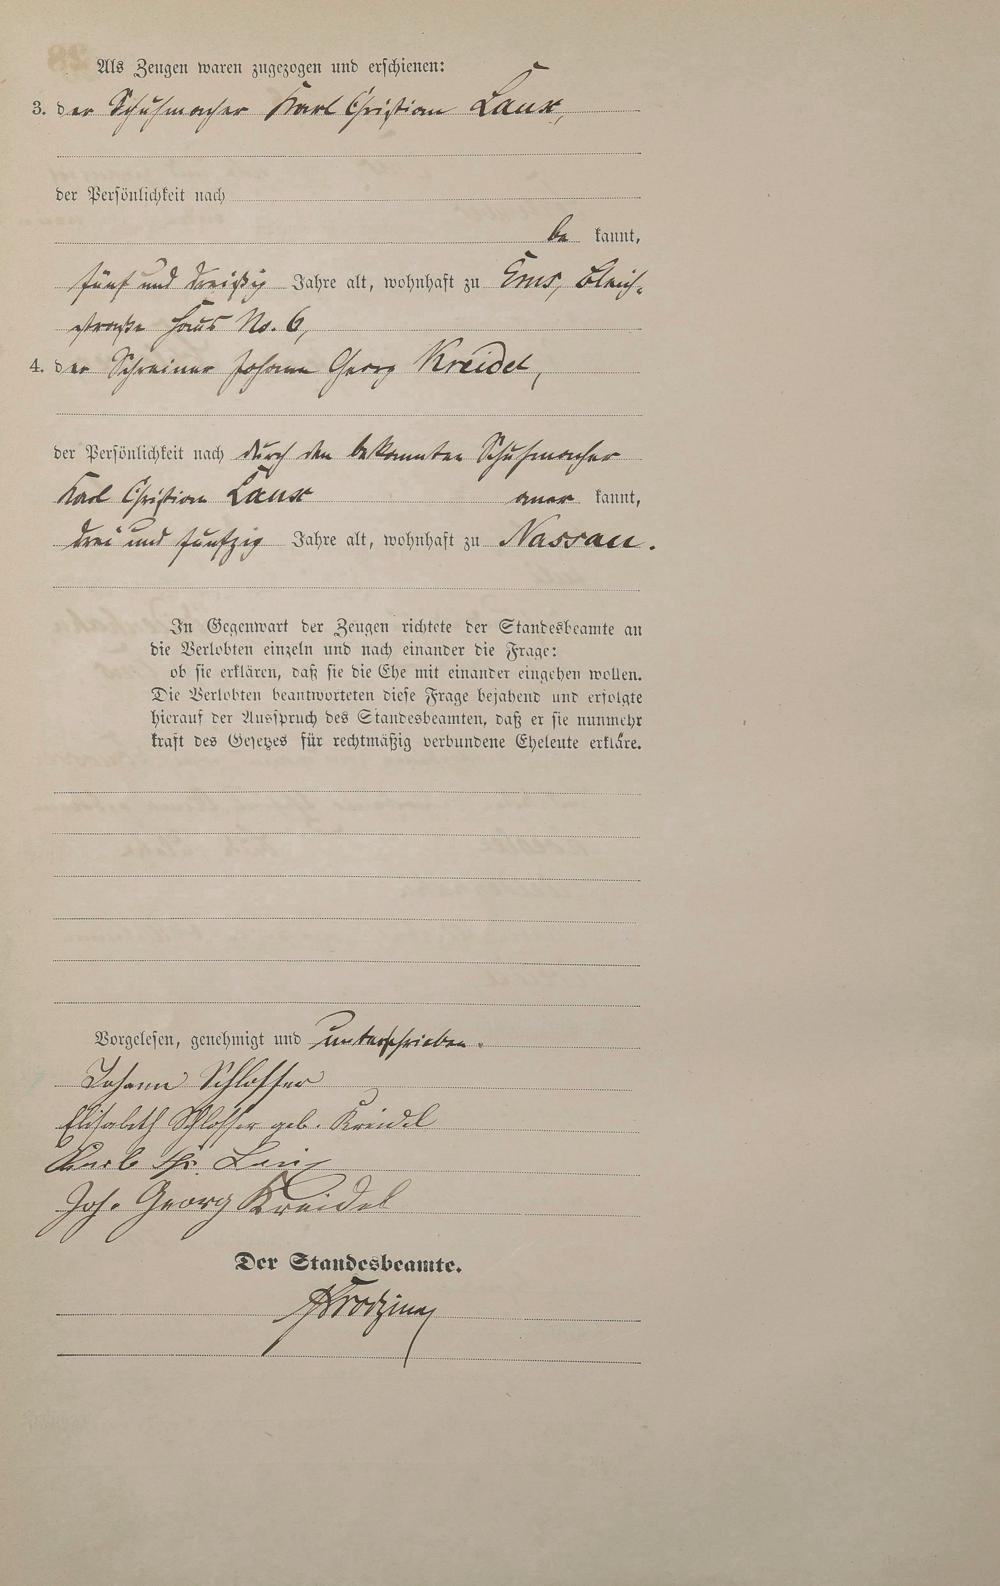 Als Zeugen waren zugezogen und erschienen:
3. der Schuhmacher Karl Christian Laux,
der Persönlichkeit nach
be kannt,
fünf und dreißig Jahre alt, wohnhaft zu Ems, Bleich-
straße Haus No. 6,
4. der Schreiner Johann Georg Kreidel,
der Persönlichkeit nach durch den bekannten Schuhmacher
Karl Christian Laux aner kannt,
drei und fünfzig Jahre alt, wohnhaft zu Nassau.
In Gegenwart der Zeugen richtete der Standesbeamte an
die Verlobten einzeln und nach einander die Frage:
ob sie erklären, daß sie die Ehe mit einander eingehen wollen.
Die Verlobten beantworteten diese Frage bejahend und erfolgte
hierauf der Ausspruch des Standesbeamten, daß er sie nunmehr
kraft des Gesetzes für rechtmäßig verbundene Eheleute erkläre.
Vorgelesen, genehmigt und unterschrieben.
Johann Schlosser
Elisabeth Schlosser geb. Kreidel
Karl Chr. Laux
Joh. Georg Kreidel
Der Standesbeamte.